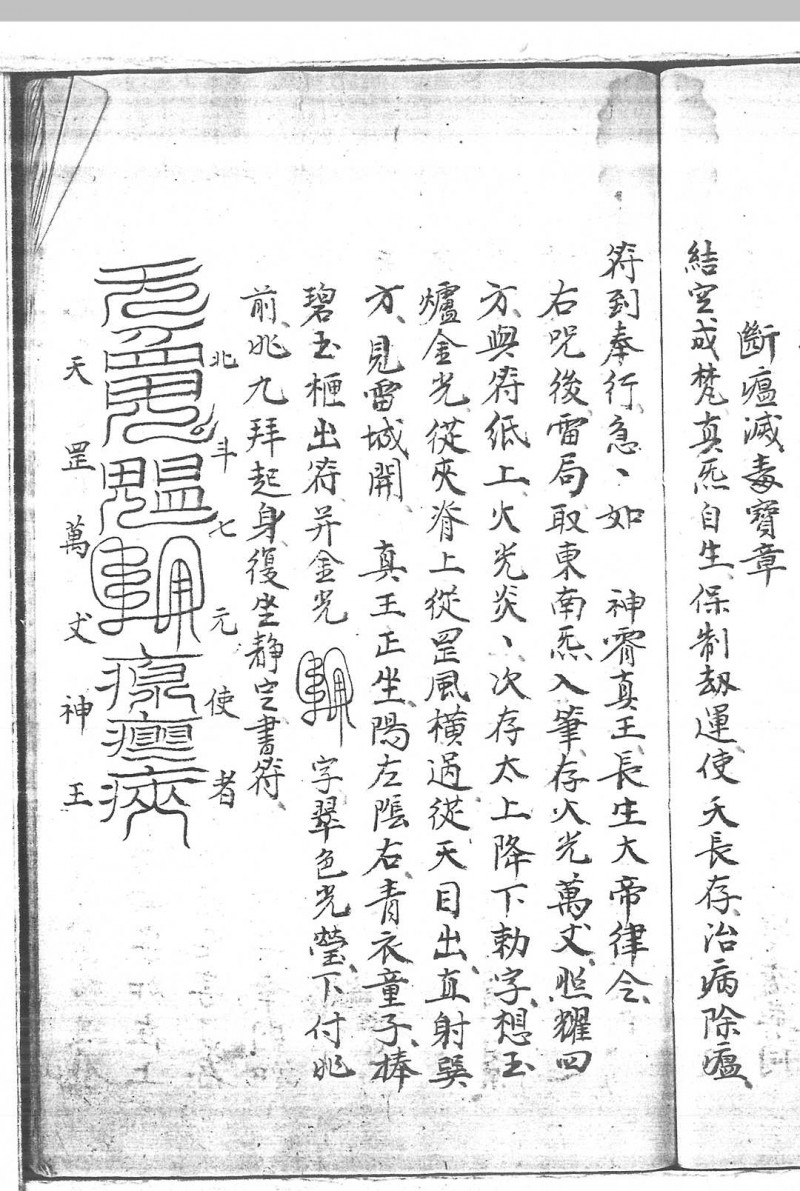 斷瘟滅毒寶章
結空成梵真炁自生保制劫運使天長存治病除瘟
符到奉行急、如 神霄真王長生大帝律令
右咒後雷局取東南炁入筆存火光萬丈照耀四
方與符紙上火光炎、次存太上降下勅字想玉
爐金光從夾脊上從罡風橫過從天目出直射巽
方見雷城開 真王正坐陽左陰右青衣童子棒
碧玉柙出符并金光 字翠色光瑩下付兆
前兆九拜起身復坐靜空書符
北斗七元使者
天罡萬丈神王